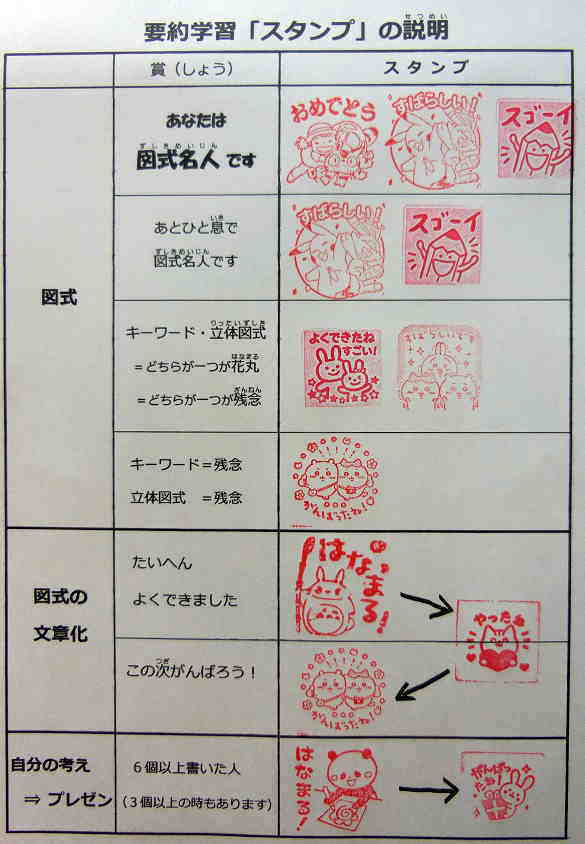 要約学習「スタンプ」の説明
せつめい
賞（しょう）
スタンプ
図式
あなたは
ずしきめいじん
図式名人です
おめでとう
すばらしい！
スゴーイ
あとひと息で
いき
ずしきめいじん
図式名人です
すばらしい！
スゴーイ
キーワード・立体図式
りったいずしき
＝どちらが一つが花丸
はなまる
＝どちらが一つが残念
ざんねん
よくできたね
すごい！
すばらしいです
キーワード＝残念
立体図式　＝残念
がんばったね！
図式の
文章化
たいへん
よくできました
はなまる！
やったね
この次がんばろう！
つぎ
がんばったね！
自分の考え
⇒ プレゼン
６個以上書いた人
（３個以上の時もあります）
はなまる！
がんばったね！